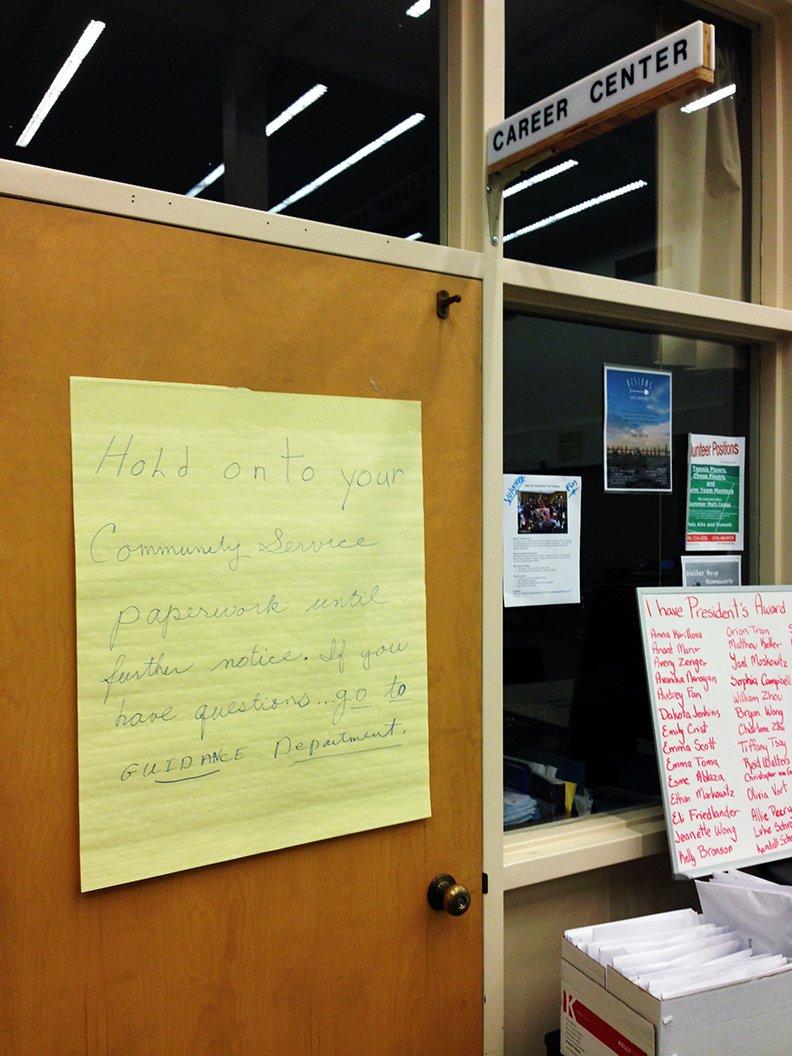 CAREER CENTER
Hold on to your
Community Service
paperwork until
further notice. If you
have questions...go to
GUIDANCE Department.
VISIONS
Volunteer
Fun
unteer Positions
Tennis Players,
Chess Players,
and
wim Team Members
Summer Math Camps
Palo Alto and Fremont
Walter Hays
Homework
I have President's Award
Anna Kirillova
Anant
Avery Zenger
Avanika Narayan
Audrey Fan
Dakota Jenkins
Emily Crist
Emma Scott
Emma Toma
Esme Ablaza
Ethan Markowitz
Eli Friedlander
Jeanette Wong
Kelly Bronson
Orion Tran
Matthew Keller
Yael Moskowitz
Sophia Campbell
William Zhou
Bryan Wong
Charlene Zhu
Tiffany Tsay
Reid Walters
Christopher
Olivia
Allie Peery
Luke Schro
Kendall Sch
K
KELLY